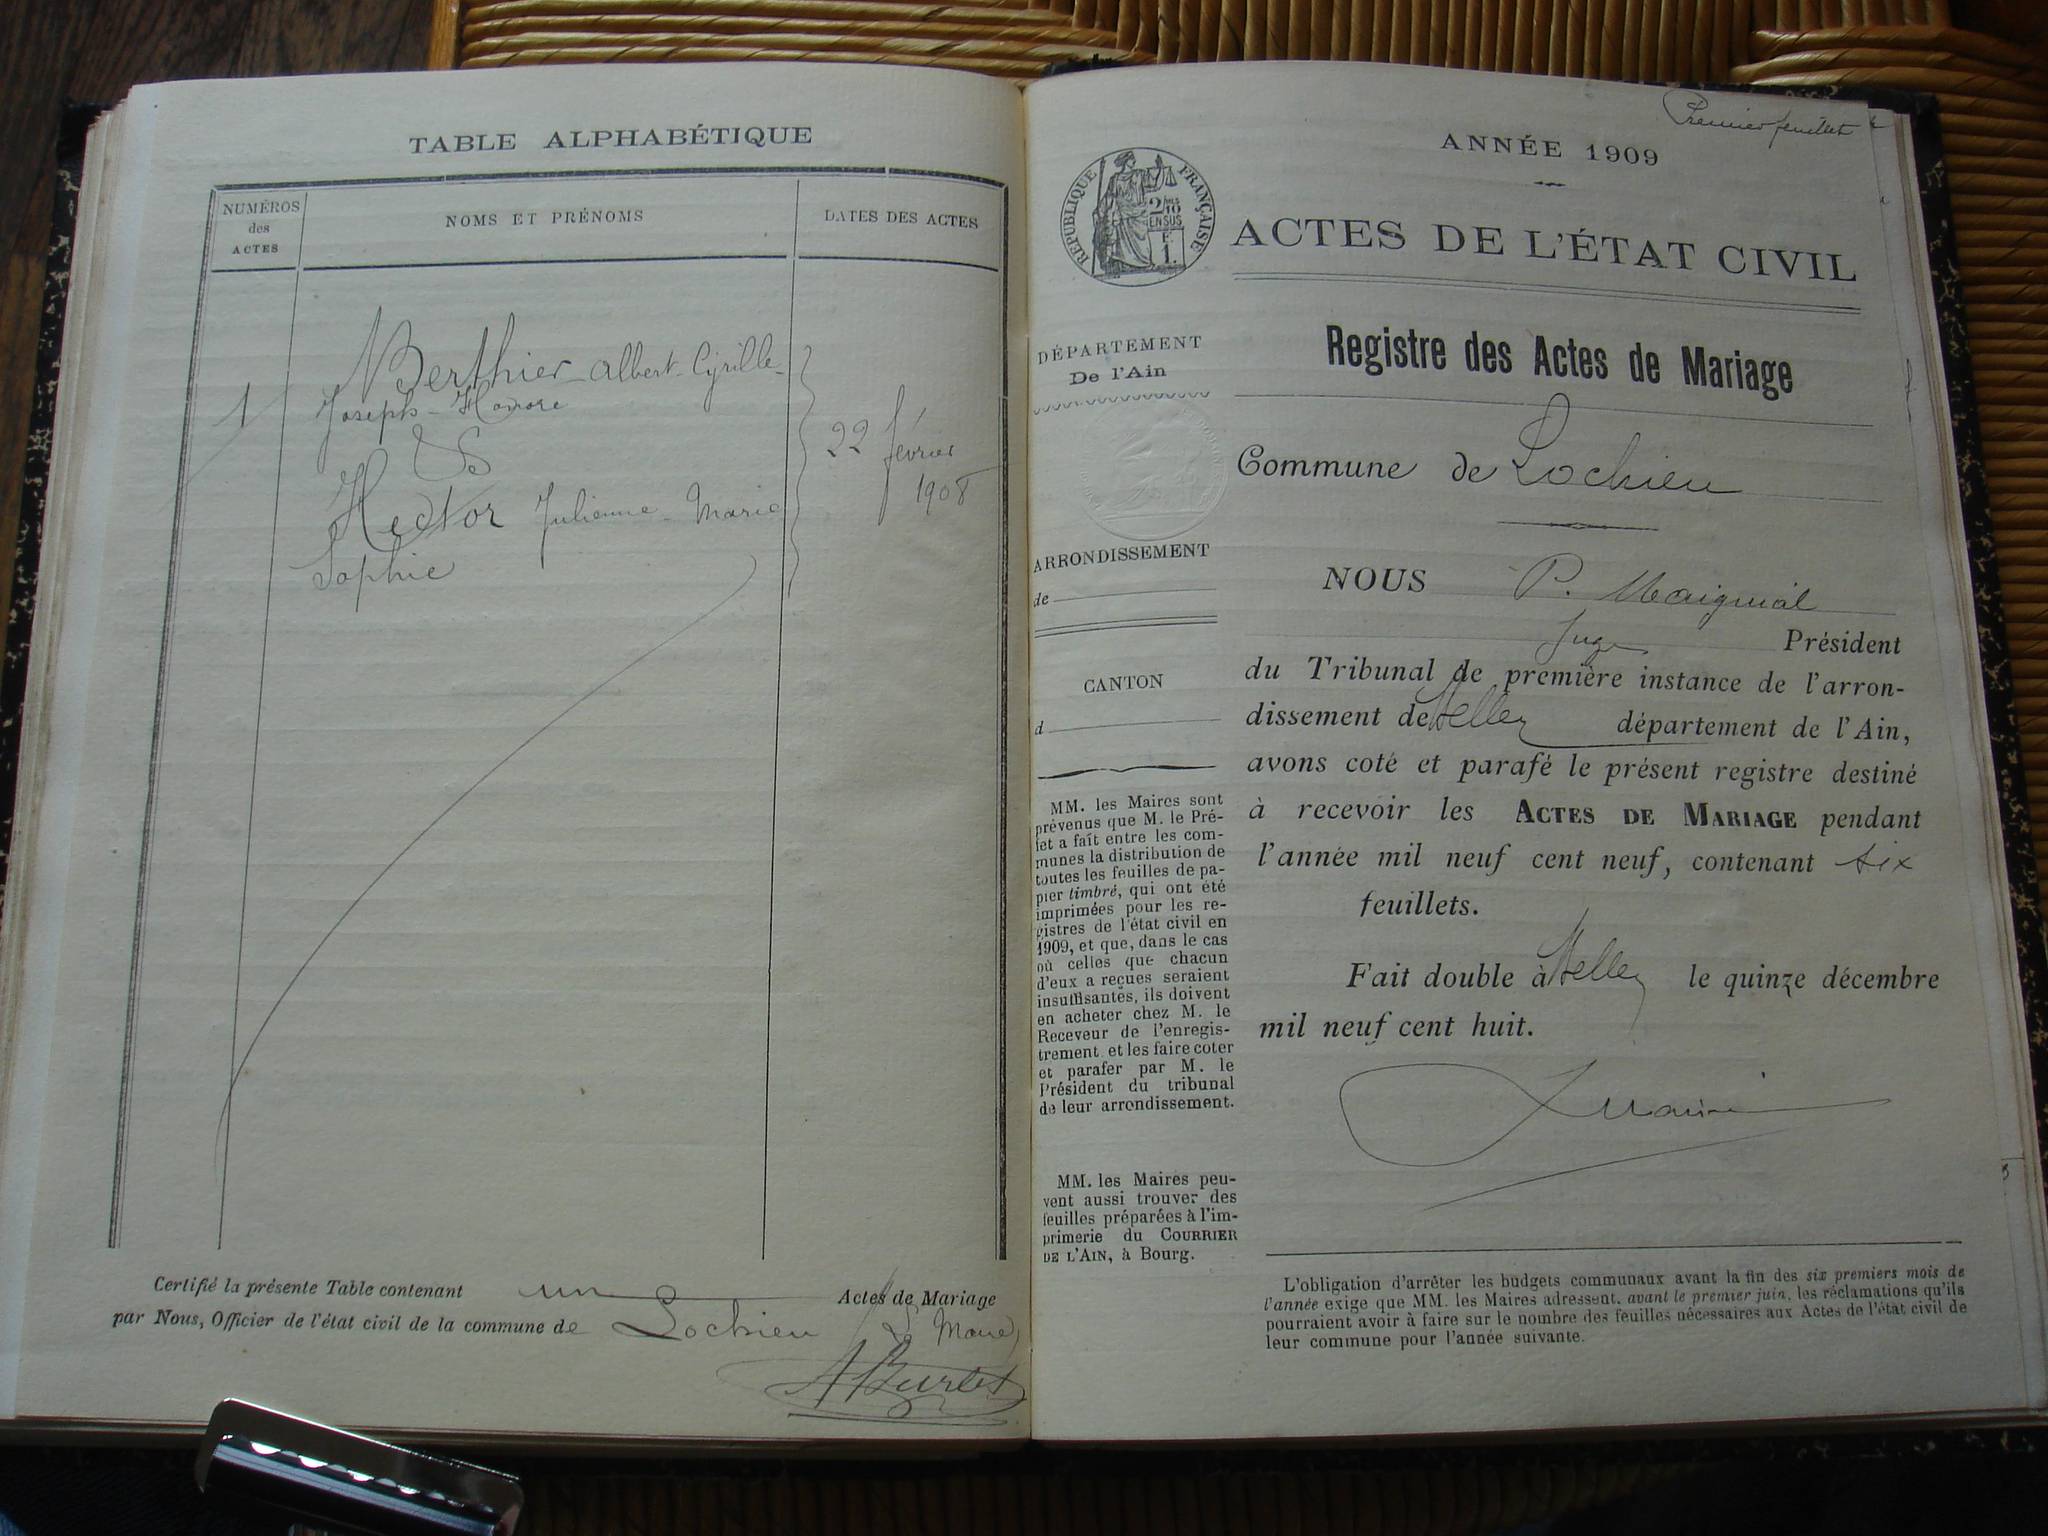 TABLE ALPHABÉTIQUE
NUMÉROS
des
ACTES
NOMS ET PRÉNOMS
DATES DES ACTES
1
Berthier Albert-Cyrille-
Joseph-Honoré
&
Hector Julienne-Marie
Sophie
22 février
1908
Certifié la présente Table contenant un Actes de Mariage
par Nous, Officier de l'état civil de la commune de Lochieu
ABurlet
Premier feuillet
ANNÉE 1909
RÉPUBLIQUE FRANÇAISE
2/10
EN SUS
F.
1.
ACTES DE L'ÉTAT CIVIL
Registre des Actes de Mariage
Commune de Lochieu
DÉPARTEMENT
De l'Ain
ARRONDISSEMENT
de
CANTON
d
MM. les Maires sont
prévenus que M. le Pré-
fet a fait entre les com-
munes la distribution de
toutes les feuilles de pa-
pier timbré, qui ont été
imprimées pour les re-
gistres de l'état civil en
1909, et que, dans le cas
où celles que chacun
d'eux a reçues seraient
insuffisantes, ils doivent
en acheter chez M. le
Receveur de l'enregis-
trement et les faire coter
et parafer par M. le
Président du tribunal
de leur arrondissement.
MM. les Maires peu-
vent aussi trouver des
feuilles préparées à l'im-
primerie du COURRIER
DE L'AIN, à Bourg.
NOUS P. Maignial
Juge Président
du Tribunal de première instance de l'arron-
dissement de Belley département de l'Ain,
avons coté et parafé le présent registre destiné
à recevoir les ACTES DE MARIAGE pendant
l'année mil neuf cent neuf, contenant six
feuillets.
Fait double à Belley le quinze décembre
mil neuf cent huit.
L'obligation d'arrêter les budgets communaux avant la fin des six premiers mois de
l'année exige que MM. les Maires adressent, avant le premier juin, les réclamations qu'ils
pourraient avoir à faire sur le nombre des feuilles nécessaires aux Actes de l'état civil de
leur commune pour l'année suivante.